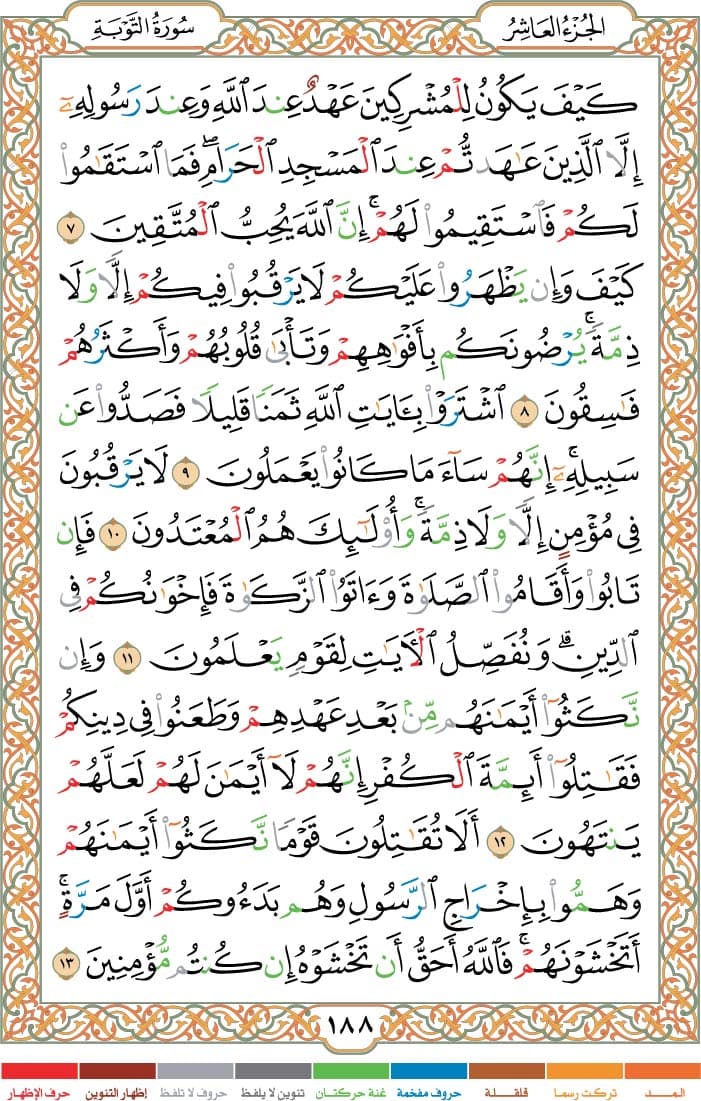 الجُزْءُ العَاشِرُ
سُورَةُ التَّوْبَةِ
كَيْفَ يَكُونُ لِلْمُشْرِكِينَ عَهْدٌ عِندَ ٱللَّهِ وَعِندَ رَسُولِهِۦٓ
إِلَّا ٱلَّذِينَ عَٰهَدتُّمْ عِندَ ٱلْمَسْجِدِ ٱلْحَرَامِۖ فَمَا ٱسْتَقَٰمُوا۟
لَكُمْ فَٱسْتَقِيمُوا۟ لَهُمْۚ إِنَّ ٱللَّهَ يُحِبُّ ٱلْمُتَّقِينَ ٧
كَيْفَ وَإِن يَظْهَرُوا۟ عَلَيْكُمْ لَا يَرْقُبُوا۟ فِيكُمْ إِلًّا وَلَا
ذِمَّةًۚ يُرْضُونَكُم بِأَفْوَٰهِهِمْ وَتَأْبَىٰ قُلُوبُهُمْ وَأَكْثَرُهُمْ
فَٰسِقُونَ ٨ ٱشْتَرَوْا۟ بِـَٔايَٰتِ ٱللَّهِ ثَمَنًا قَلِيلًا فَصَدُّوا۟ عَن
سَبِيلِهِۦٓۚ إِنَّهُمْ سَآءَ مَا كَانُوا۟ يَعْمَلُونَ ٩ لَا يَرْقُبُونَ
فِى مُؤْمِنٍ إِلًّا وَلَا ذِمَّةًۚ وَأُو۟لَٰٓئِكَ هُمُ ٱلْمُعْتَدُونَ ١٠ فَإِن
تَابُوا۟ وَأَقَامُوا۟ ٱلصَّلَوٰةَ وَءَاتَوُا۟ ٱلزَّكَوٰةَ فَإِخْوَٰنُكُمْ فِى
ٱلدِّينِۗ وَنُفَصِّلُ ٱلْـَٔايَٰتِ لِقَوْمٍ يَعْلَمُونَ ١١ وَإِن
نَّكَثُوٓا۟ أَيْمَٰنَهُم مِّنۢ بَعْدِ عَهْدِهِمْ وَطَعَنُوا۟ فِى دِينِكُمْ
فَقَٰتِلُوٓا۟ أَئِمَّةَ ٱلْكُفْرِ إِنَّهُمْ لَآ أَيْمَٰنَ لَهُمْ لَعَلَّهُمْ
يَنتَهُونَ ١٢ أَلَا تُقَٰتِلُونَ قَوْمًا نَّكَثُوٓا۟ أَيْمَٰنَهُمْ
وَهَمُّوا۟ بِإِخْرَاجِ ٱلرَّسُولِ وَهُم بَدَءُوكُمْ أَوَّلَ مَرَّةٍۚ
أَتَخْشَوْنَهُمْۚ فَٱللَّهُ أَحَقُّ أَن تَخْشَوْهُ إِن كُنتُم مُّؤْمِنِينَ ١٣
١٨٨
المـــد تركت رسما قلقـــلة حروف مفخمة غنة حركتـان تنوين لا يلفظ حروف لا تلفظ إظهار التنوين حرف الإظهار